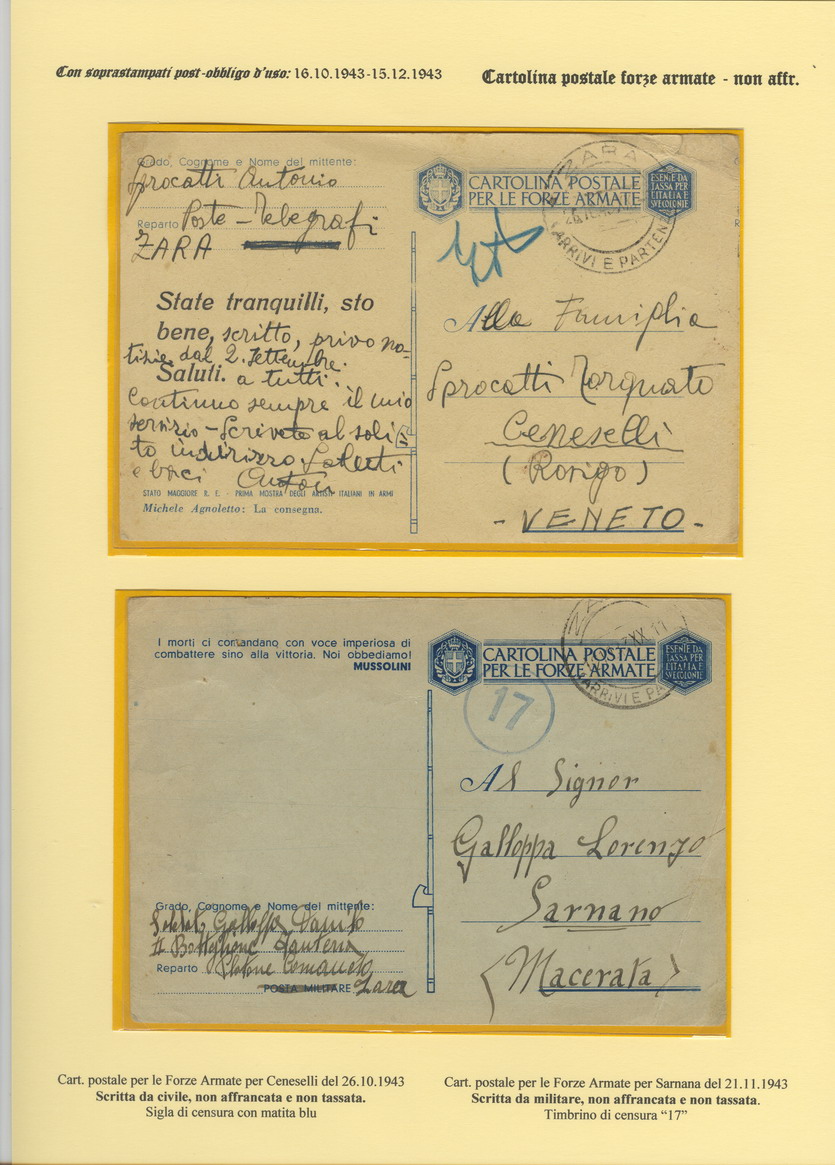 Con soprastampati post-obbligo d'uso: 16.10.1943-15.12.1943
Cartolina postale forze armate - non affr.
Grado, Cognome e Nome del mittente:
Sprocatti Antonio
Reparto Poste - Telegrafi
ZARA
State tranquilli, sto
bene, scritto, privo no-
tizie dal 2. Settembre.
Saluti. a tutti.
Continuo sempre il mio
servizio - Scrivete al soli
to indirizzo. Saluti
e baci
STATO MAGGIORE R. E. - PRIMA MOSTRA DEGLI ARTISTI ITALIANI IN ARMI
Michele Agnoletto: La consegna.
CARTOLINA POSTALE
PER LE FORZE ARMATE
ESENTE DA
TASSA PER
L'ITALIA E
SUE COLONIE
ZARA
ARRIVI E PARTENZE
Alla Famiglia
Sprocatti Torquato
Ceneselli
(Rovigo)
- VENETO -
I morti ci comandano con voce imperiosa di
combattere sino alla vittoria. Noi obbediamo!
MUSSOLINI
CARTOLINA POSTALE
PER LE FORZE ARMATE
ESENTE DA
TASSA PER
L'ITALIA E
SUE COLONIE
ARRIVI E PA
17
Al Signor
Galloppa Lorenzo
Sarnano
(Macerata)
Grado, Cognome e Nome del mittente:
Soldato Galloppa Danilo
II Battaglione
Reparto Plotone Comando
POSTA MILITARE Zara
Cart. postale per le Forze Armate per Ceneselli del 26.10.1943
Scritta da civile, non affrancata e non tassata.
Sigla di censura con matita blu
Cart. postale per le Forze Armate per Sarnana del 21.11.1943
Scritta da militare, non affrancata e non tassata.
Timbrino di censura “17”